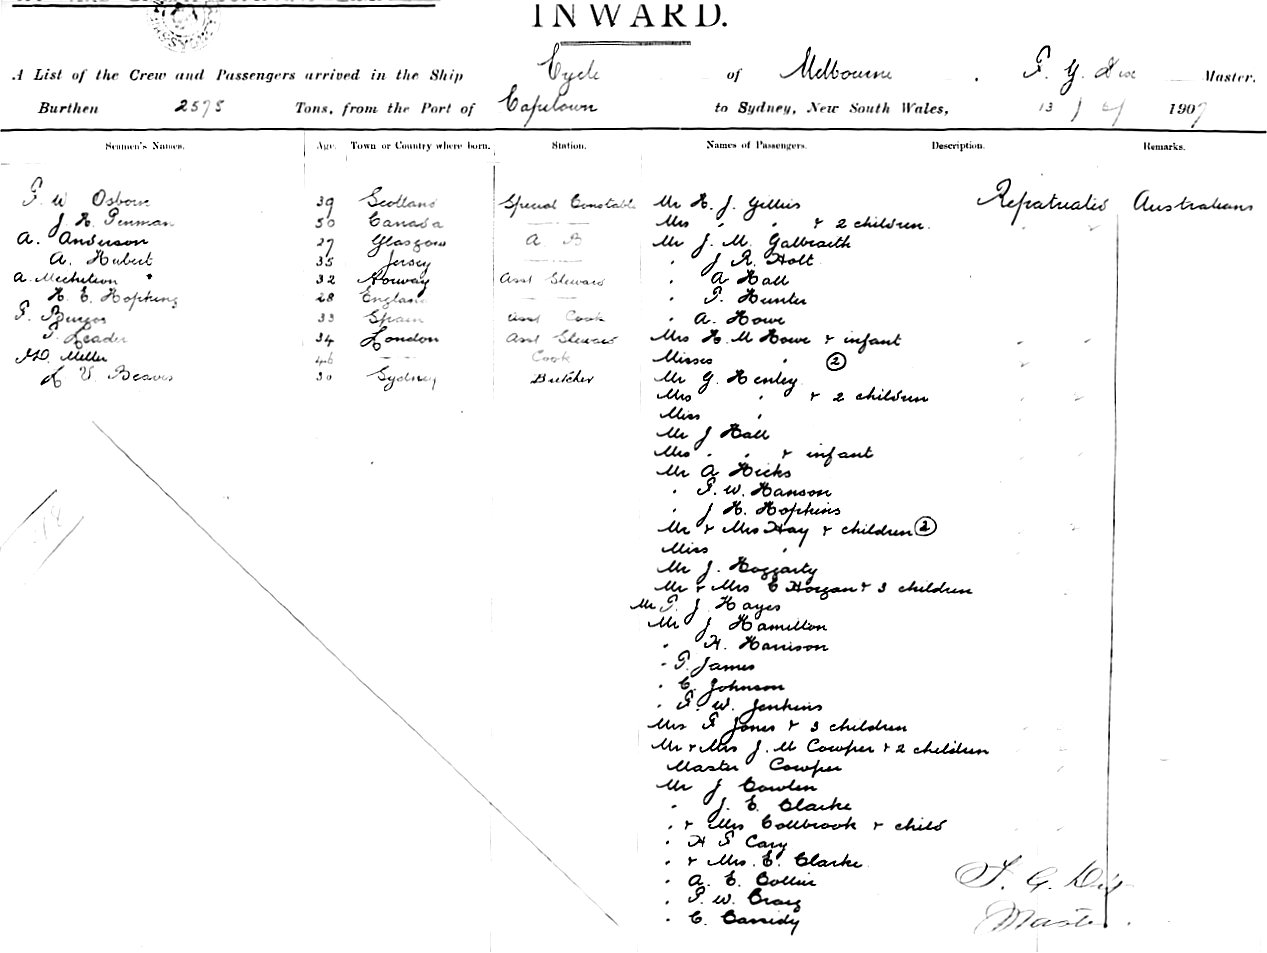 INWARD.
A List of the Crew and Passengers arrived in the Ship Cycle of Melbourne . Master.
Burthen 2575 Tons, from the Port of Capetown to Sydney, New South Wales, 13 / 1907
Seamen's Names. Age. Town or Country where born. Station. Names of Passengers. Description. Remarks.
F W Osborn 39 Scotland Special Constable Mr H. J. Gillies Repatriated Australians
J H. Penman 50 Canada — — Mrs " " & 2 children
A. Anderson 27 Glasgow A B Mr J. M. Galbraith
A. Hubert 35 Jersey — — " J R. Holt
A. 32 Norway Asst Steward " A Hall
H. E. Hopkins 28 England — — " T. Hunter
F. 33 Spain Asst Cook " A. Howe
T. Leader 34 London Asst Steward Mrs H. M Howe & infant
Miller 46 — — Cook Misses " 2
V Beaves 30 Sydney Butcher Mr G. Henley
Mrs " & 2 children
Miss "
Mr J Hall
Mrs " " & infant
Mr A Hicks
" F. W. Hanson
" J H. Hopkins
Mr & Mrs Hay & children 2
Miss "
Mr J. Hoggarty
Mr & Mrs E Horgan & 3 children
Mr T. J Hayes
Mr J Hamilton
" H. Harrison
" T. James
" C. Johnson
" F. W. Jenkins
Mrs F Jones & 3 children
Mr & Mrs J. M Cowper & 2 children
Master Cowper
Mr J Cowlen
" J. E. Clarke
" & Mrs Collbrook & child
" H F Cary
" & Mrs. E. Clarke
" A. E. Collier
" F. W. Craig
" C. Cassidy
Master.